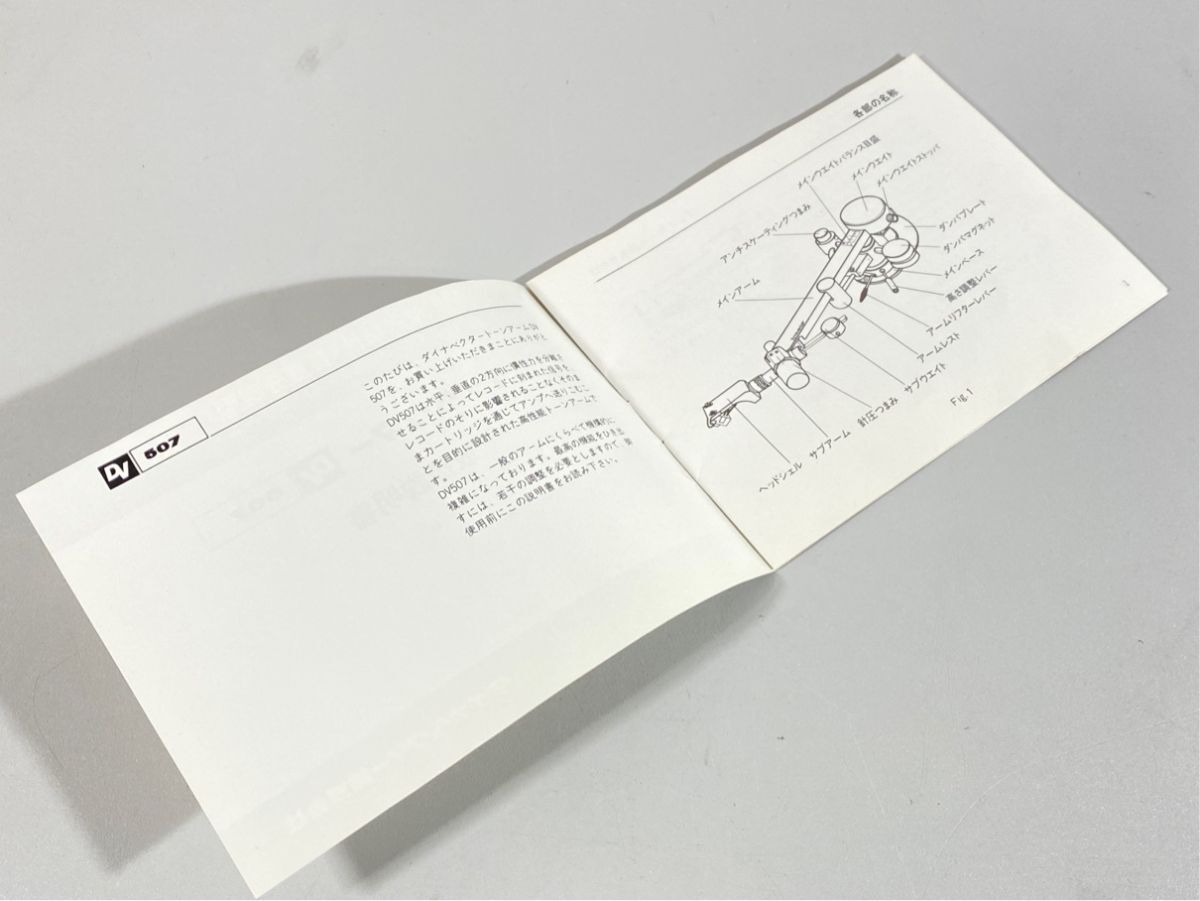 DV 507
このたびは、ダイナベクタートーンアームDV
507を、お買い上げいただきまことにありがと
うございます。
DV507は水平、垂直の2方向に慣性力を分離さ
せることによってレコードに刻まれた信号を
レコードのそりに影響されることなくそのま
まカートリッジを通じてアンプへ送りこむこ
とを目的に設計された高性能トーンアームで
す。
DV507は、一般のアームにくらべて機構的に
複雑になっております。最高の機能をひき出
すには、若干の調整を必要としますので、御
使用前にこの説明書をお読み下さい。
各部の名称
メインウエイトバランス目盛
メインウエイト
メインウエイトストッパ
アンチスケーティングつまみ
ダンパプレート
ダンパマグネット
メインアーム
メインベース
高さ調整レバー
アームリフターレバー
アームレスト
サブウエイト
針圧つまみ
サブアーム
ヘッドシェル
Fig.1